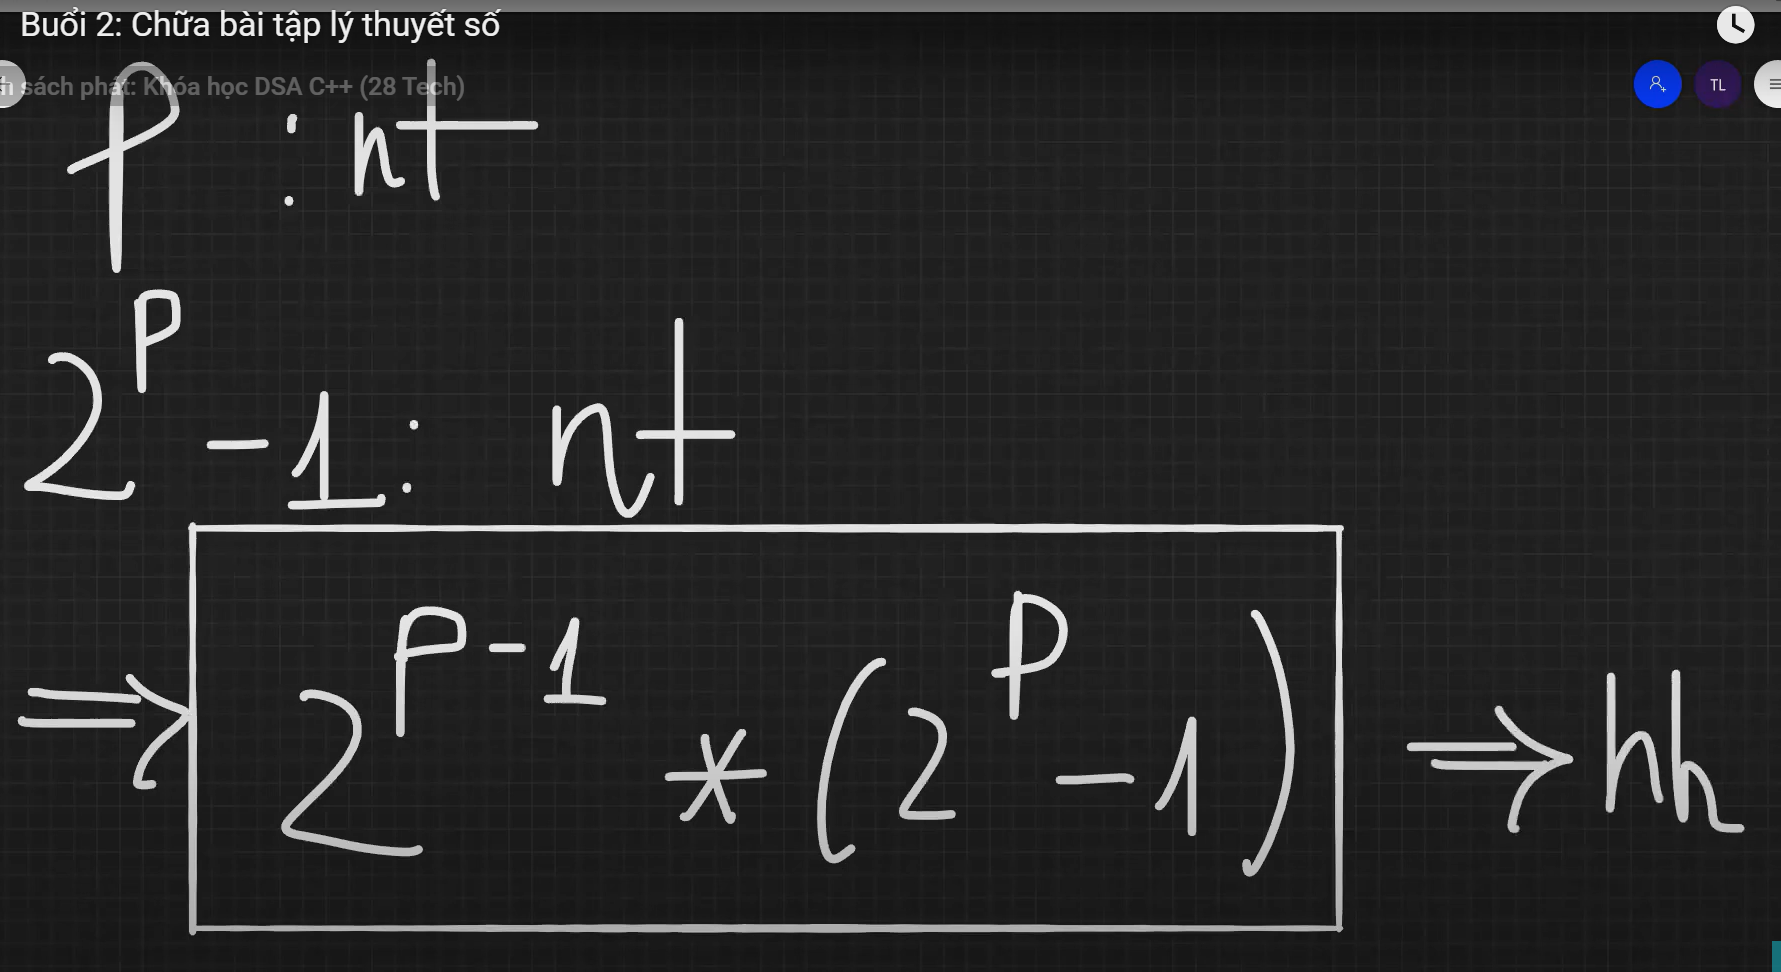 Buổi 2: Chữa bài tập lý thuyết số
h sách phát: Khóa học DSA C++ (28 Tech)
TL
P : nt
2^P - 1 : nt
⇒ 2^P-1 * (2^P - 1) ⇒ hh